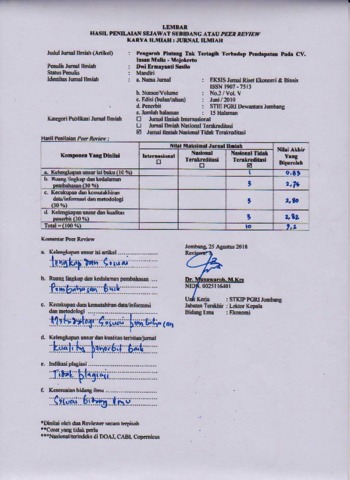 LEMBAR
HASIL PENILAIAN SEJAWAT SEBIDANG ATAU PEER REVIEW
KARYA ILMIAH : JURNAL ILMIAH
Judul Jurnal Ilmiah (Artikel) : Pengaruh Piutang Tak Tertagih Terhadap Pendapatan Pada CV.
Intan Mulia - Mojokerto
Penulis Jurnal Ilmiah : Dwi Ermayanti Susilo
Status Penulis : Mandiri
Identitas Jurnal Ilmiah : a. Nama Jurnal : EKSIS Jurnal Riset Ekonomi & Bisnis
ISSN 1907 - 7513
b. Nomor/Volume : No.2 / Vol. V
c. Edisi (bulan/tahun) : Juni / 2010
d. Penerbit : STIE PGRI Dewantara Jombang
e. Jumlah halaman : 15 Halaman
Kategori Publikasi Jurnal Ilmiah : ☐ Jurnal Ilmiah Internasional
☐ Jurnal Ilmiah Nasional Terakreditasi
☑ Jurnal Ilmiah Nasional Tidak Terakreditasi
Hasil Penilaian Peer Review :
Komponen Yang Dinilai
Nilai Maksimal Jurnal Ilmiah
Internasional ☐
Nasional Terakreditasi ☐
Nasional Tidak Terakreditasi ☑
Nilai Akhir Yang Diperoleh
a. Kelengkapan unsur isi buku (10 %) 1 0.85
b. Ruang lingkup dan kedalaman pembahasan (30 %) 3 2,74
c. Kecukupan dan kemutakhiran data/informasi dan metodologi (30 %) 3 2,80
d. Kelengkapan unsur dan kualitas penerbit (30 %) 3 2,82
Total = (100 %) 10 9,2
Komentar Peer Review
Jombang, 25 Agustus 2018
Reviewer
a. Kelengkapan unsur isi artikel
Lengkap dan Sesuai
b. Ruang lingkup dan kedalaman pembahasan
Pembahasan Baik
Dr. Munawaroh, M.Kes
NIDN. 0025116401
c. Kecukupan dan kemutakhiran data/informasi
dan metodologi
Metodologi Sesuai pembahasan
Unit Kerja : STKIP PGRI Jombang
Jabatan Terakhir : Lektor Kepala
Bidang Ilmu : Ekonomi
d. Kelengkapan unsur dan kualitas terbitan/jurnal
Kualitas penerbit Baik
e. Indikasi plagiasi
Tidak plagiasi
f. Kesesuaian bidang ilmu
Sesuai bidang ilmu
*Dinilai oleh dua Reviewer secara terpisah
**Coret yang tidak perlu
***Nasional/terindeks di DOAJ, CABI, Copernicus